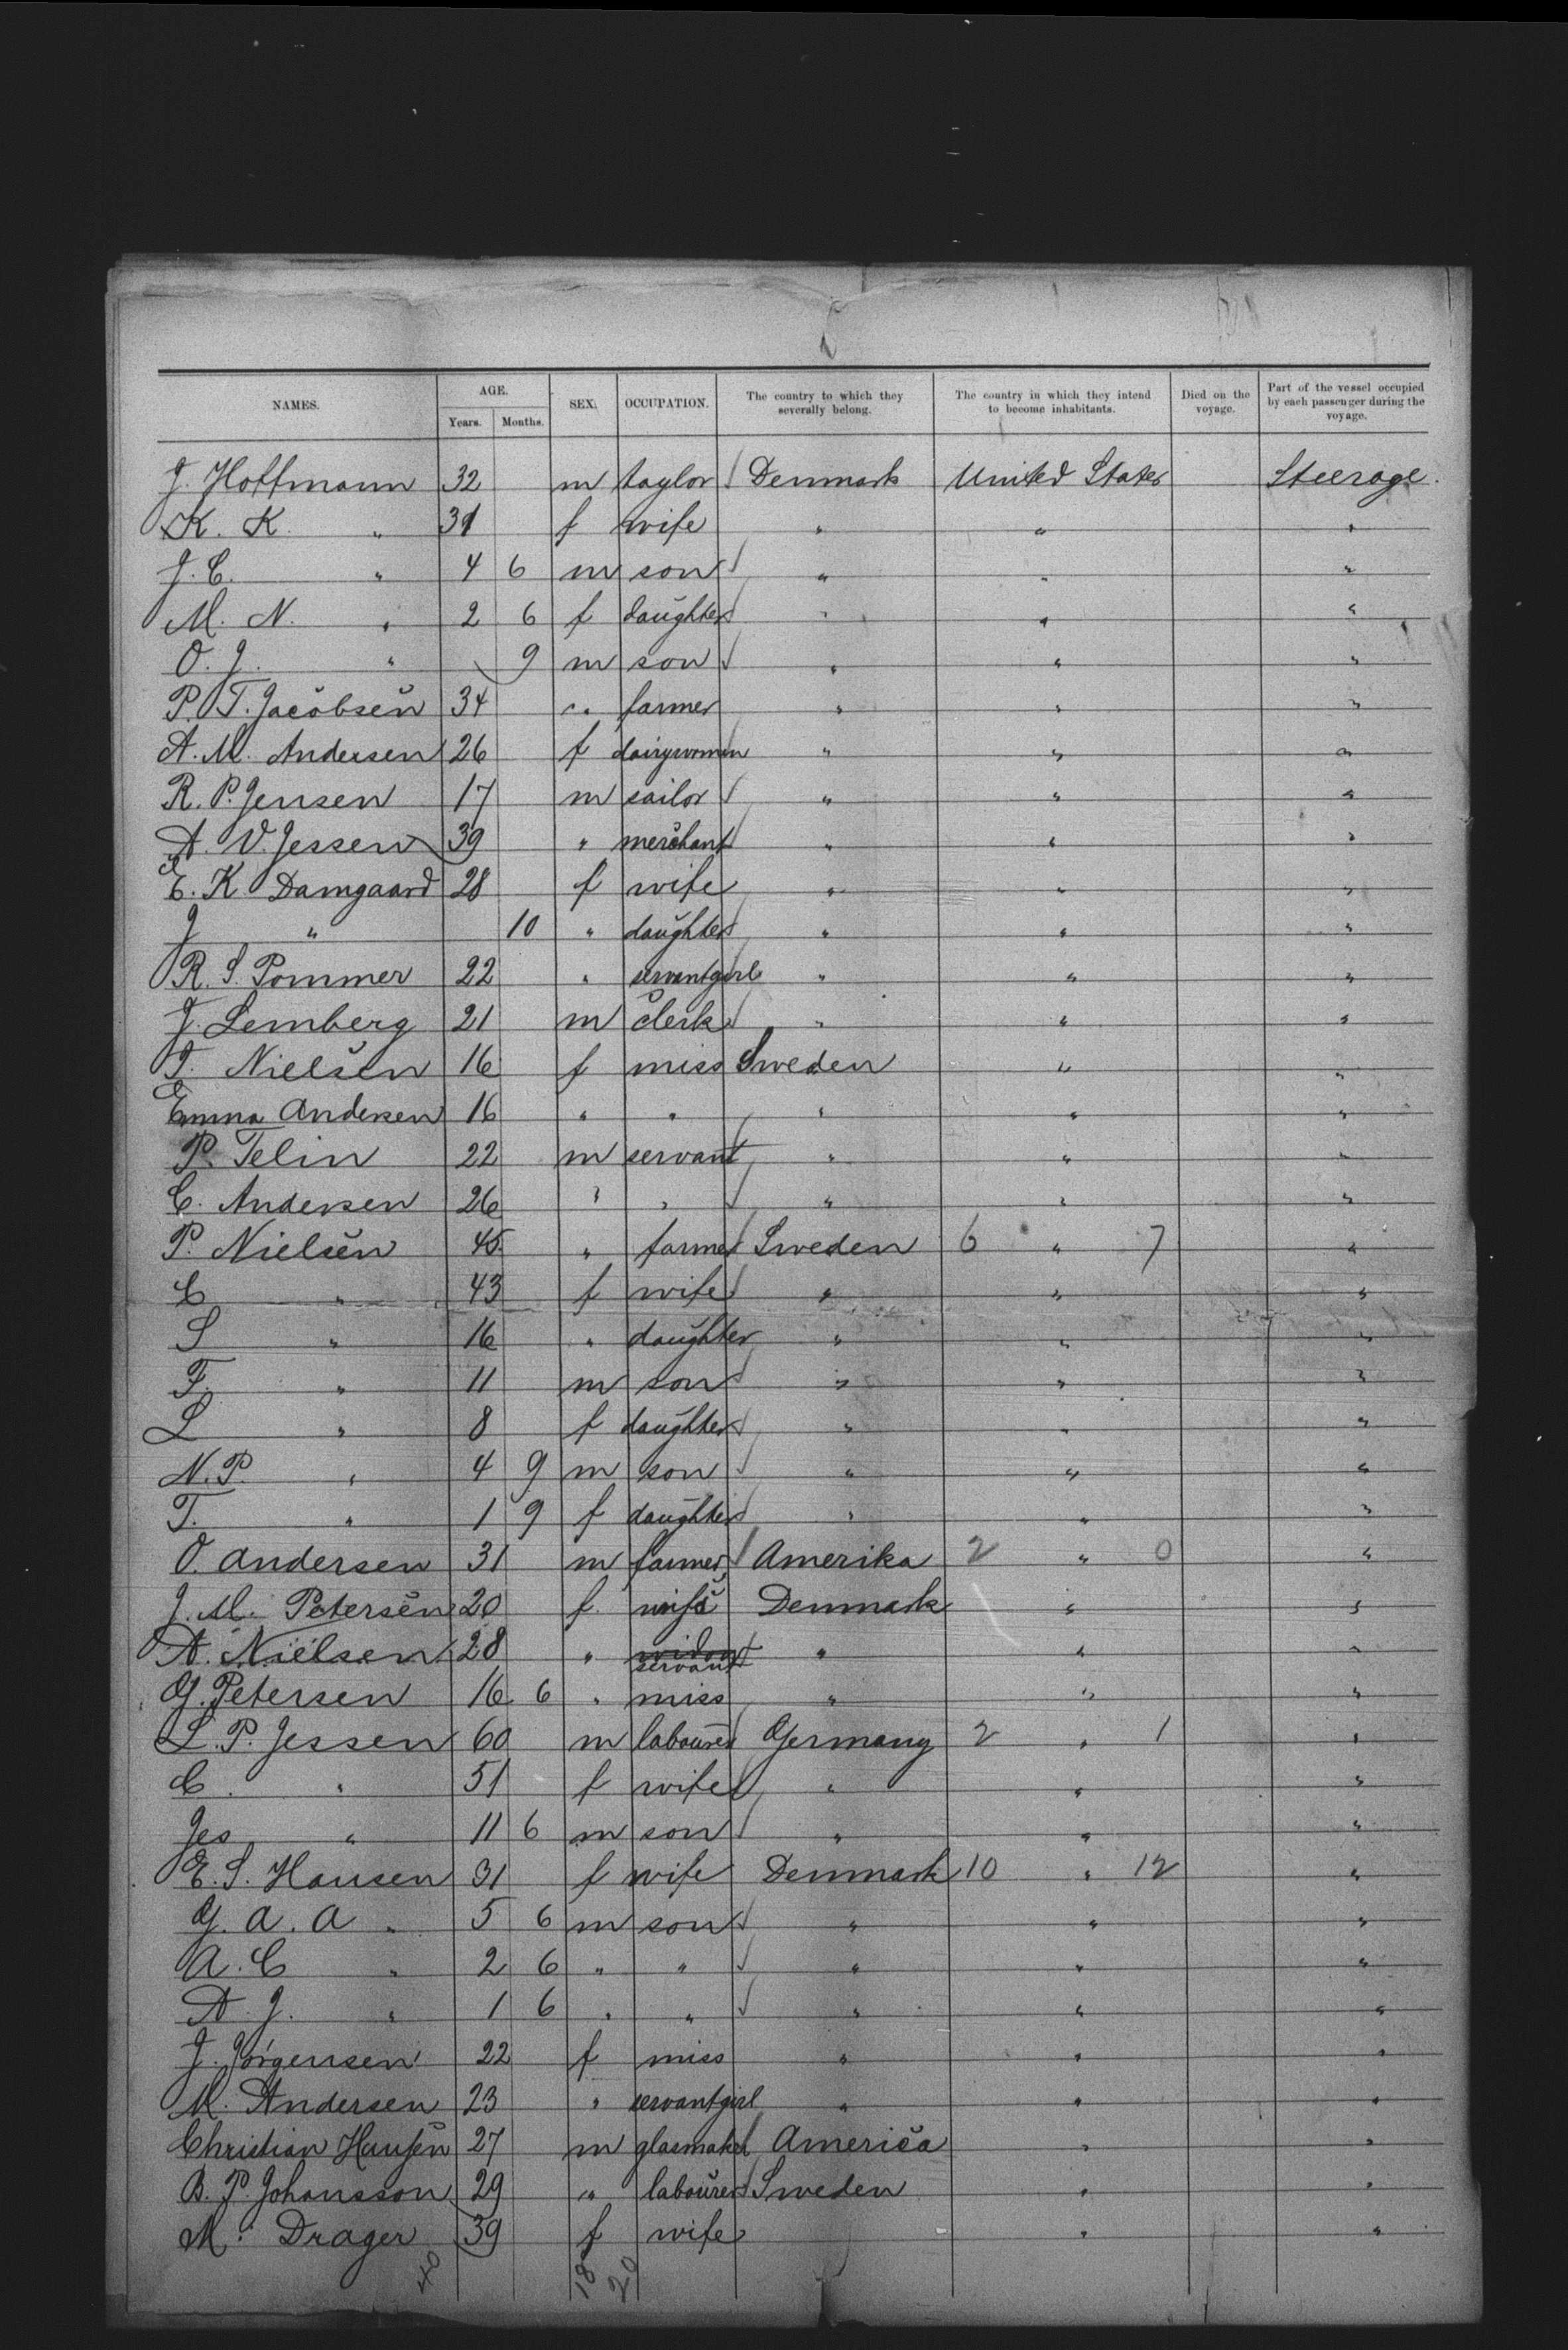 NAMES. AGE. Years. Months. SEX. OCCUPATION. The country to which they severally belong. The country in which they intend to become inhabitants. Died on the voyage. Part of the vessel occupied by each passenger during the voyage.
J. Hoffmann 32 m taylor Denmark United States Steerage.
K. K. " 31 f wife " " "
J. C. " 4 6 m son " " "
M. N. " 2 6 f daughter " " "
O. J. " 9 m son " " "
P. T. Jacobsen 34 " farmer " " "
A. M. Andersen 26 f dairywomen " " "
R. P. Jensen 17 m sailor " " "
A. V. Jessen 39 " merchant " " "
E. K Damgaard 28 f wife " " "
J " 10 " daughter " " "
R. S. Pommer 22 " servantgirl " " "
J. Lemberg 21 m clerk " " "
T. Nielsen 16 f miss Sweden " "
Emma Andersen 16 " " " " "
P. Telin 22 m servant " " "
C. Andersen 26 " " " " "
P. Nielsen 45 " farmer Sweden 6 " 7 "
C " 43 f wife " " "
S " 16 " daughter " " "
F. " 11 m son " " "
L " 8 f daughter " " "
N. P. " 4 9 m son " " "
T. " 1 9 f daughter " " "
O. Andersen 31 m farmer Amerika 2 " 0 "
J. M. Petersen 20 f. Denmark " "
A. Nielsen 28 " widow servant " " "
G. Petersen 16 6 " miss " " "
L. P. Jessen 60 m labourer Germany 2 " 1 "
C. " 51 f wife " " "
Jes " 11 6 m son " " "
E. S. Hansen 31 f wife Denmark 10 " 12 "
G. A. A " 5 6 m son " " "
A. C " 2 6 " " " " "
A. J. " 1 6 " " " " "
J. Jörgensen 22 f miss " " "
M. Andersen 23 " servantgirl " " "
Christian Hansen 27 m glasmaker America " "
B. P. Johansson 29 " labourer Sweden " "
M. Drager 39 f wife " "
40 18 20